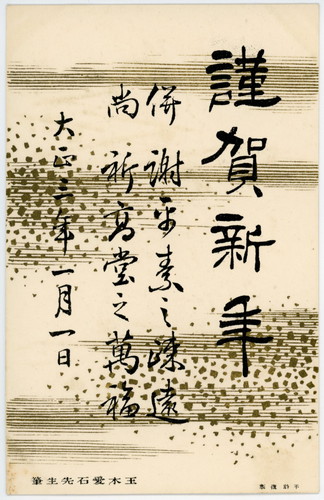 謹賀新年
併謝平素之疎遠
尚祈高堂之萬福
大正三年一月一日
玉木愛石先生筆